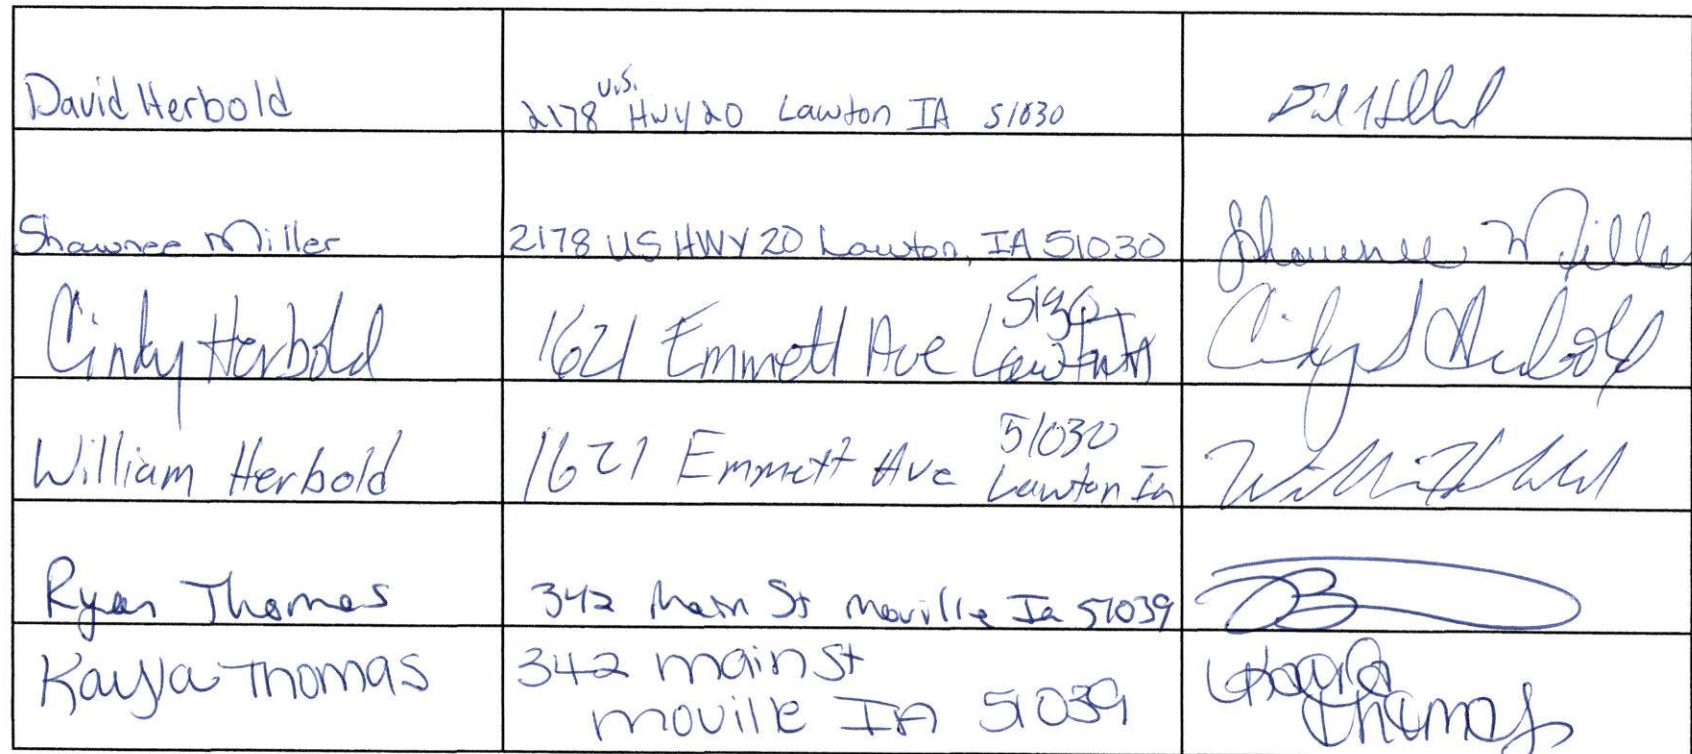 David Herbold
2178 U.S. Hwy 20 Lawton IA 51030
Shawnee Miller
2178 US HWY 20 Lawton, IA 51030
Shawnee Miller
Cindy Herbold
1621 Emmett Ave Lawton IA
Cindy S Herbold
William Herbold
1621 Emmett Ave
51030
Lawton Ia
Ryan Thomas
342 Main St Moville Ia 51039
Kayla Thomas
342 main st
moville IA 51039
Kayla
Thomas